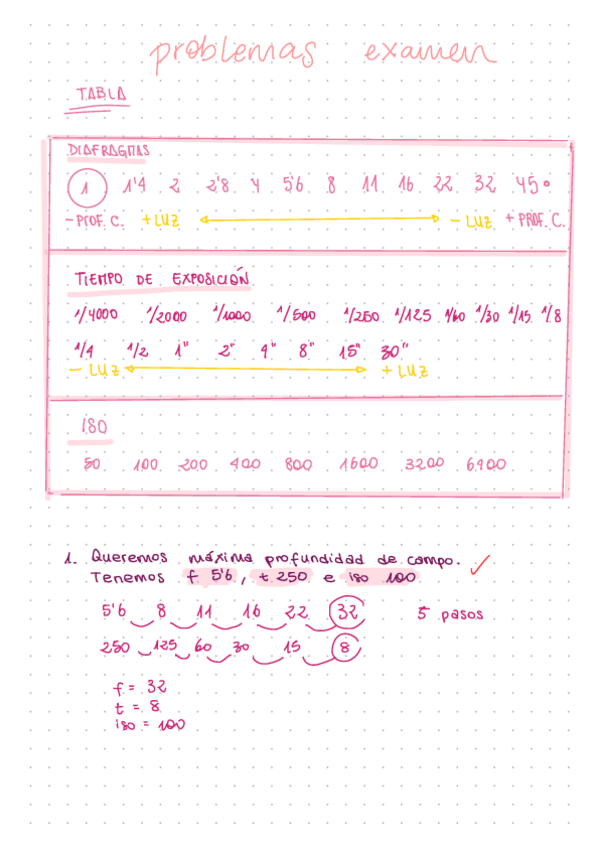 problemas examen
TABLA
DIAFRAGMAS
1 1'4 2 2'8 4 5'6 8 11 16 22 32 45
- PROF. C. + LUZ - LUZ + PROF. C.
TIEMPO DE EXPOSICIÓN
1/4000 1/2000 1/1000 1/500 1/250 1/125 1/60 1/30 1/15 1/8
1/4 1/2 1" 2" 4" 8" 15" 30"
- LUZ + LUZ
ISO
50 100 200 400 800 1600 3200 6400
1. Queremos máxima profundidad de campo.
Tenemos f 5'6, t 250 e iso 100
5'6 8 11 16 22 32 5 pasos
250 125 60 30 15 8
f = 32
t = 8
iso = 100